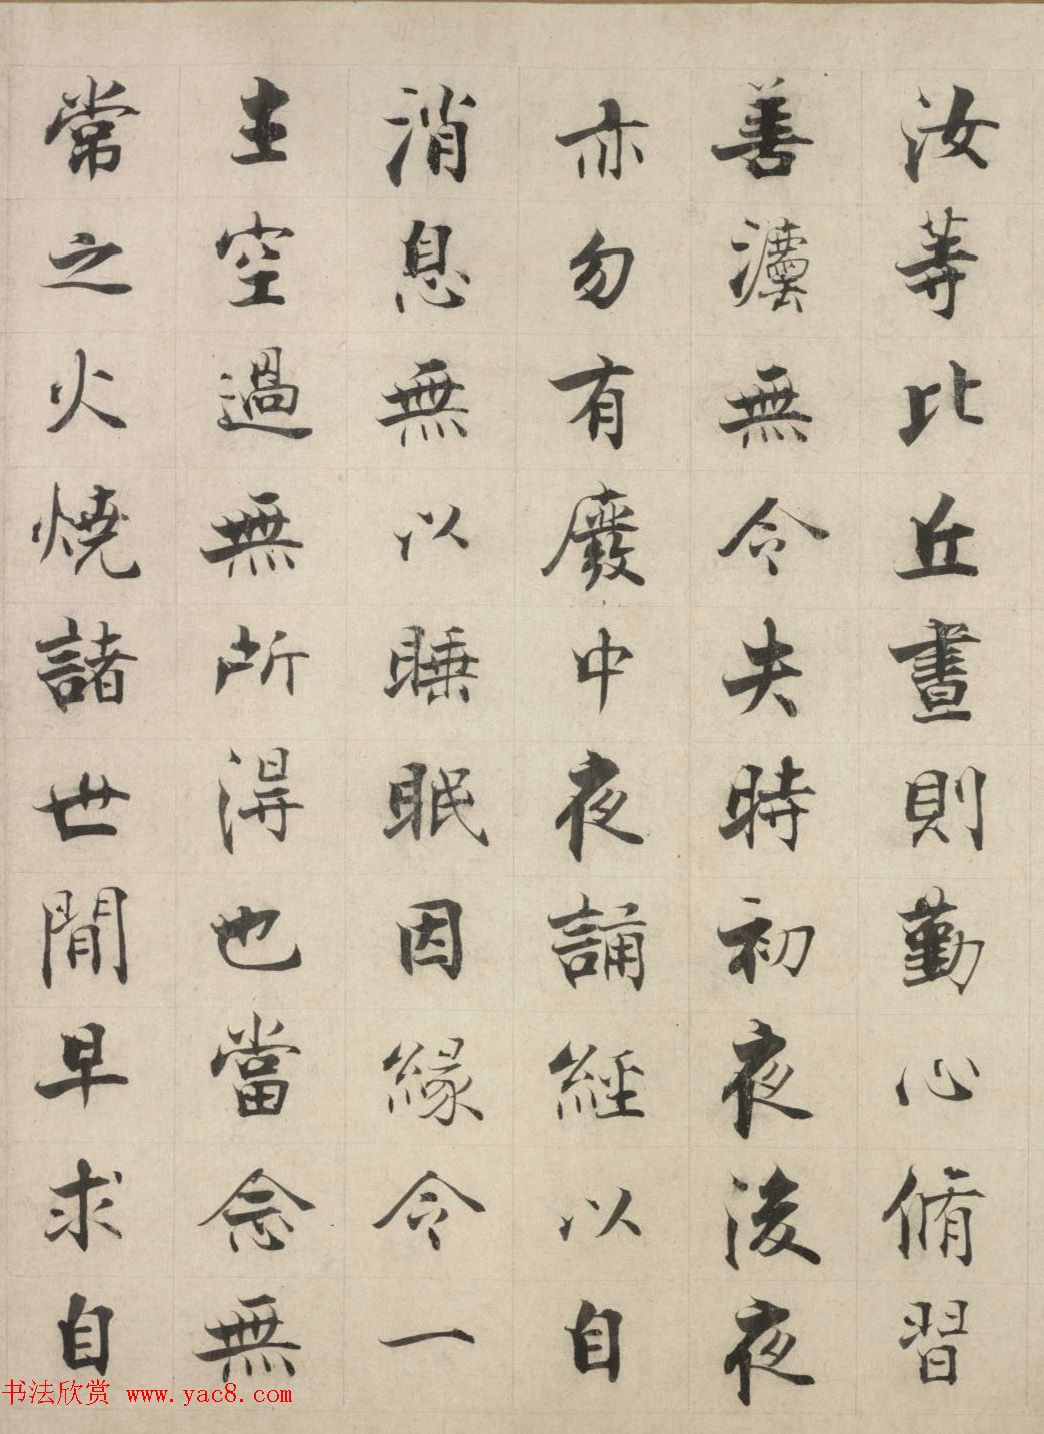 汝等比丘晝則勤心脩習
善灋無令失時初夜後夜
亦勿有廢中夜誦經以自
消息無以睡眠因緣令一
生空過無所得也當念無
常之火燒諸世間早求自
书法欣赏 www.yac8.com